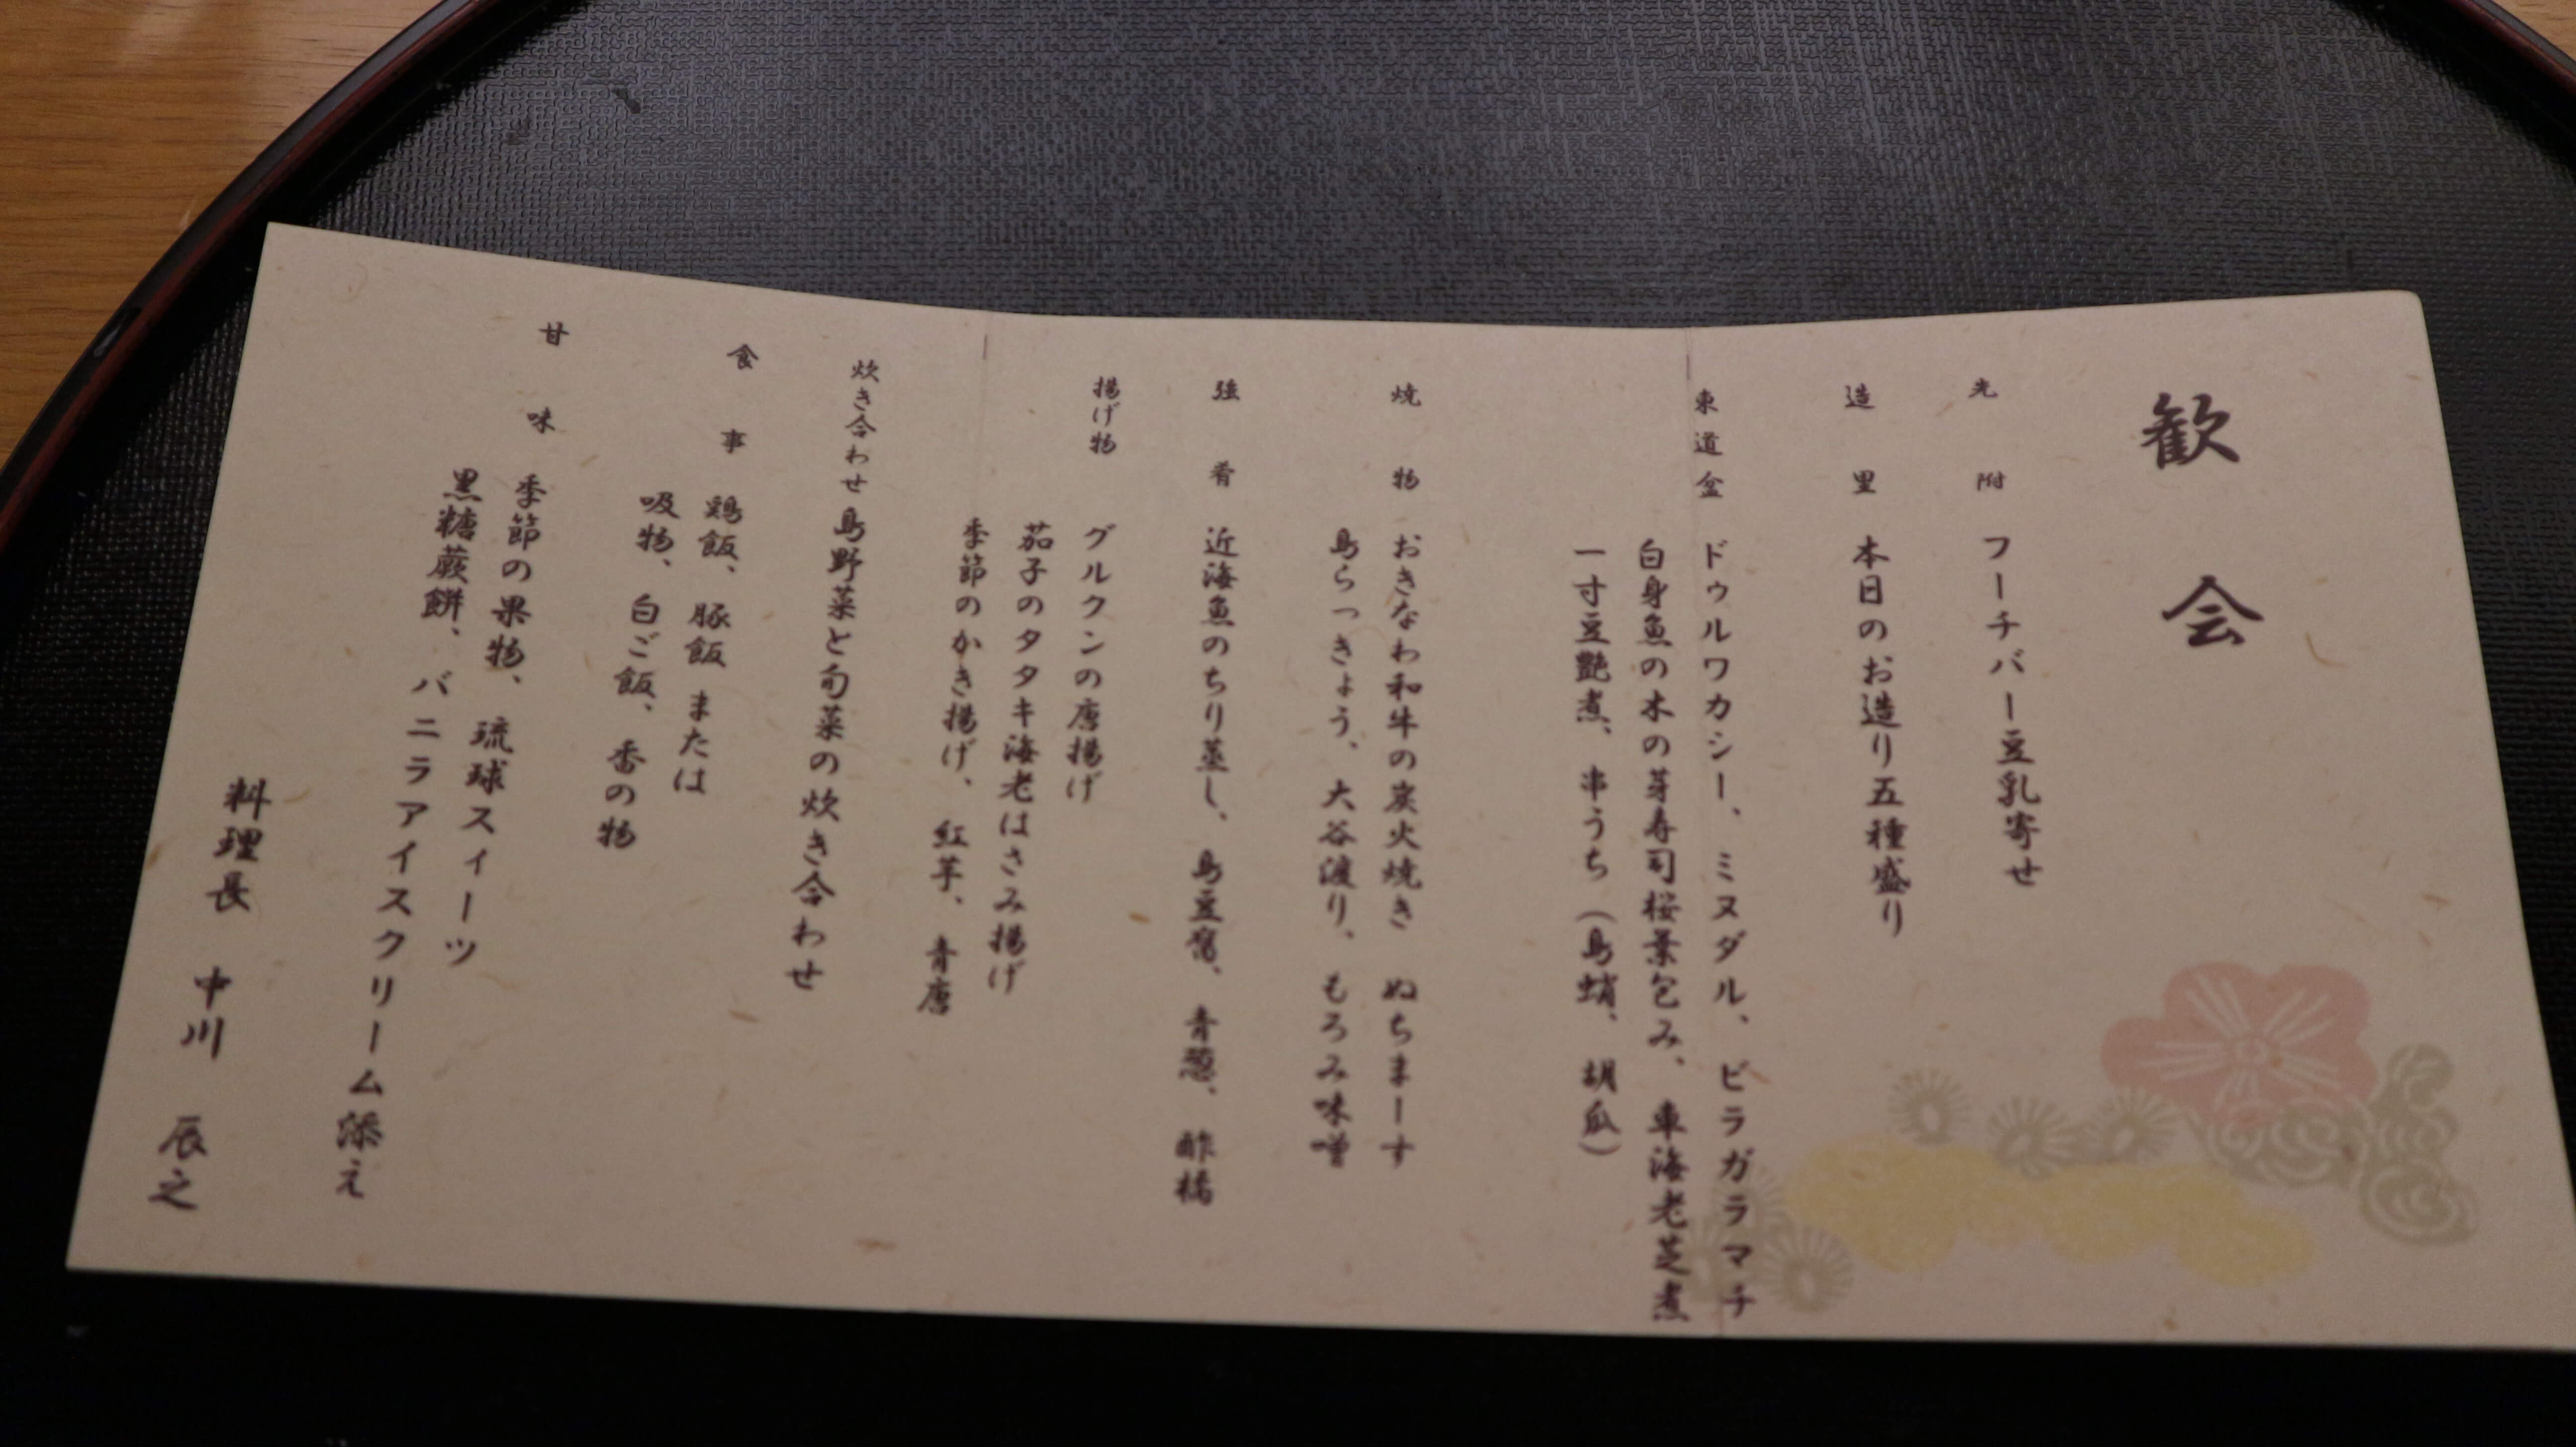 歓会
先附 フーチバー豆乳寄せ
造里 本日のお造り五種盛り
東道盆 ドゥルワカシー、ミヌダル、ビラガラマチ
白身魚の木の芽寿司桜葉包み、車海老芝煮
一寸豆艶煮、串うち（島蛸、胡瓜）
焼物 おきなわ和牛の炭火焼き ぬちまーす
島らっきょう、大谷渡り、もろみ味噌
強肴 近海魚のちり蒸し、島豆腐、青葱、酢橘
揚げ物 グルクンの唐揚げ
茄子のタタキ海老はさみ揚げ
季節のかき揚げ、紅芋、青唐
炊き合わせ 島野菜と旬菜の炊き合わせ
食事 鶏飯、豚飯 または
吸物、白ご飯、香の物
甘味 季節の果物、琉球スィーツ
黒糖蕨餅、バニラアイスクリーム添え
料理長 中川 辰之